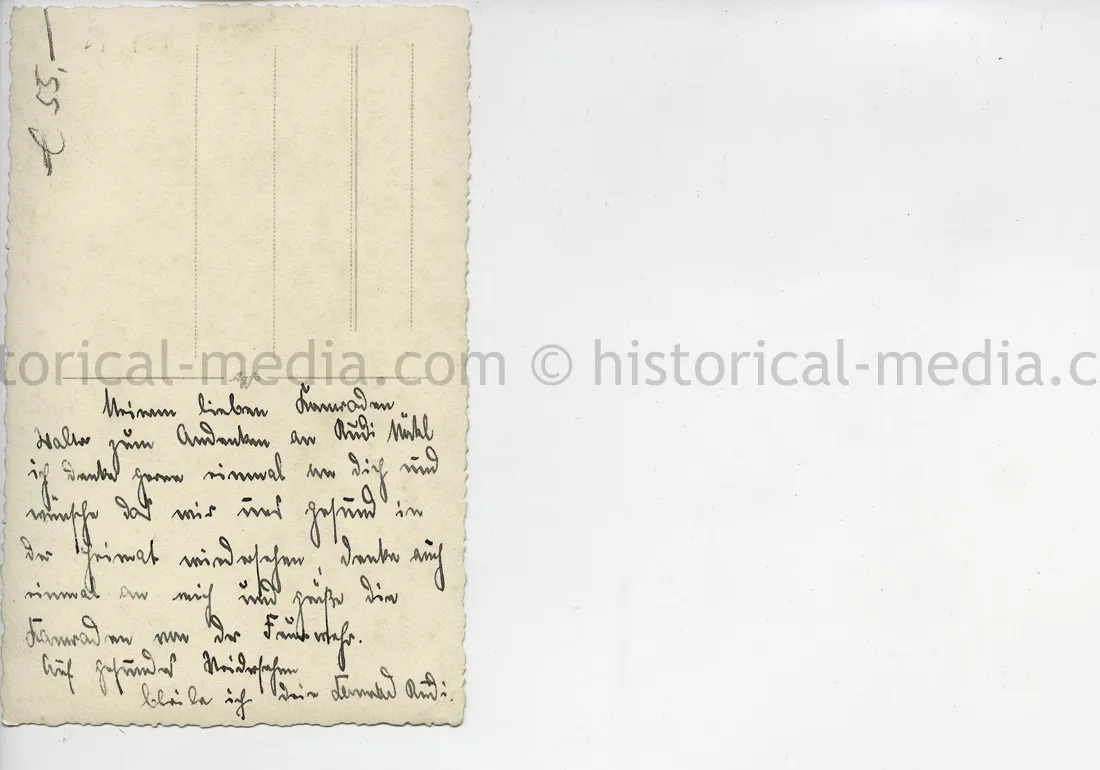 € 55,-
historical-media.com © historical-media.com
Meinem lieben Kamraden
Walter zum Andenken an Rudi
ich denke gerne einmal an dich und
wünsche das wir uns gesund in
der Heimat wiedersehen, denke auch
einmal an mich und grüße die
Kamraden von der Feuerwehr.
Auf gesundes Weidersehen
bleibe ich dein Kamrad Rudi.